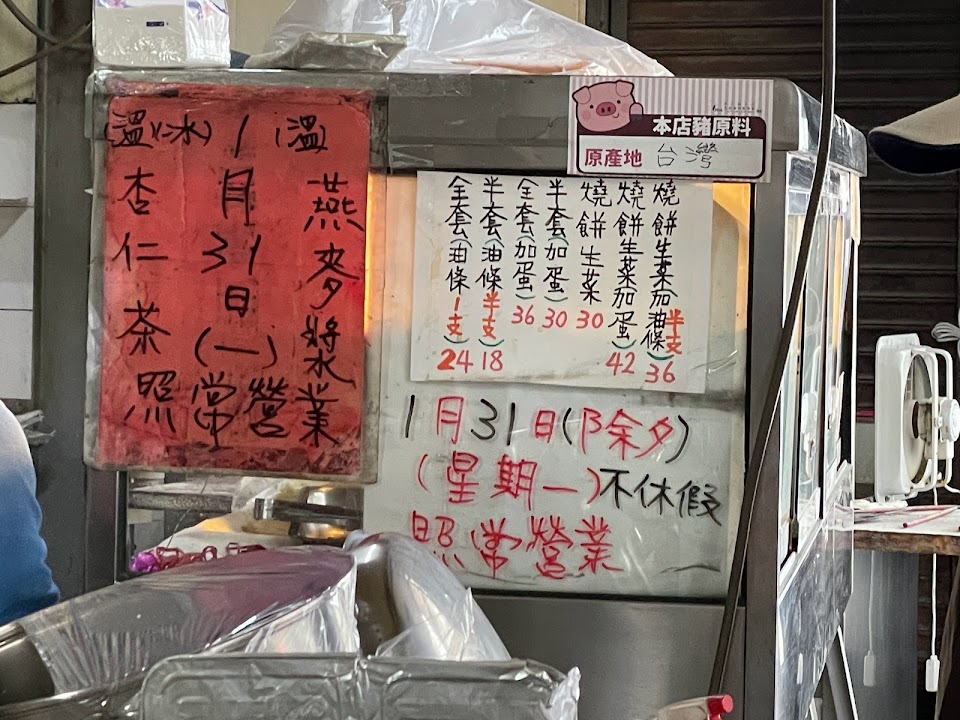 (溫、冰)
杏仁茶
1月31日(一)
(溫)
燕麥漿
照常營業
本店豬原料
原產地 台灣
全套(油條1支)24
半套(油條半支)18
全套(加蛋)36
半套(加蛋)30
燒餅生菜30
燒餅生菜加蛋42
燒餅生菜加油條(半支)36
1月31日(除夕)
(星期一)不休假
照常營業